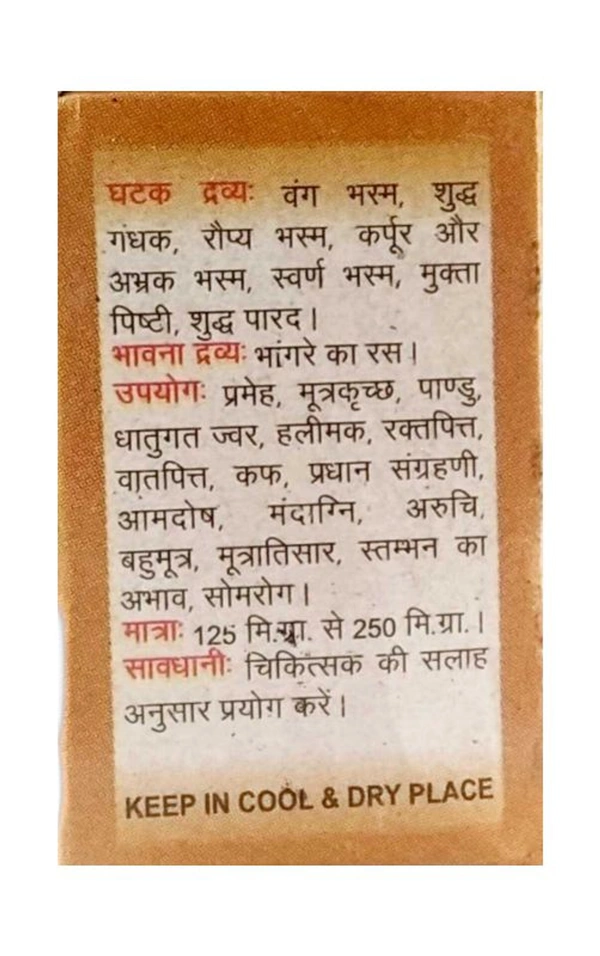 घटक द्रव्यः वंग भस्म, शुद्ध
गंधक, रौप्य भस्म, कर्पूर और
अभ्रक भस्म, स्वर्ण भस्म, मुक्ता
पिष्टी, शुद्ध पारद।
भावना द्रव्यः भांगरे का रस।
उपयोगः प्रमेह, मूत्रकृच्छ, पाण्डु,
धातुगत ज्वर, हलीमक, रक्तपित्त,
वातपित्त, कफ, प्रधान संग्रहणी,
आमदोष, मंदाग्नि, अरुचि,
बहुमूत्र, मूत्रातिसार, स्तम्भन का
अभाव, सोमरोग।
मात्राः 125 मि.ग्रा. से 250 मि.ग्रा.।
सावधानीः चिकित्सक की सलाह
अनुसार प्रयोग करें।
KEEP IN COOL & DRY PLACE